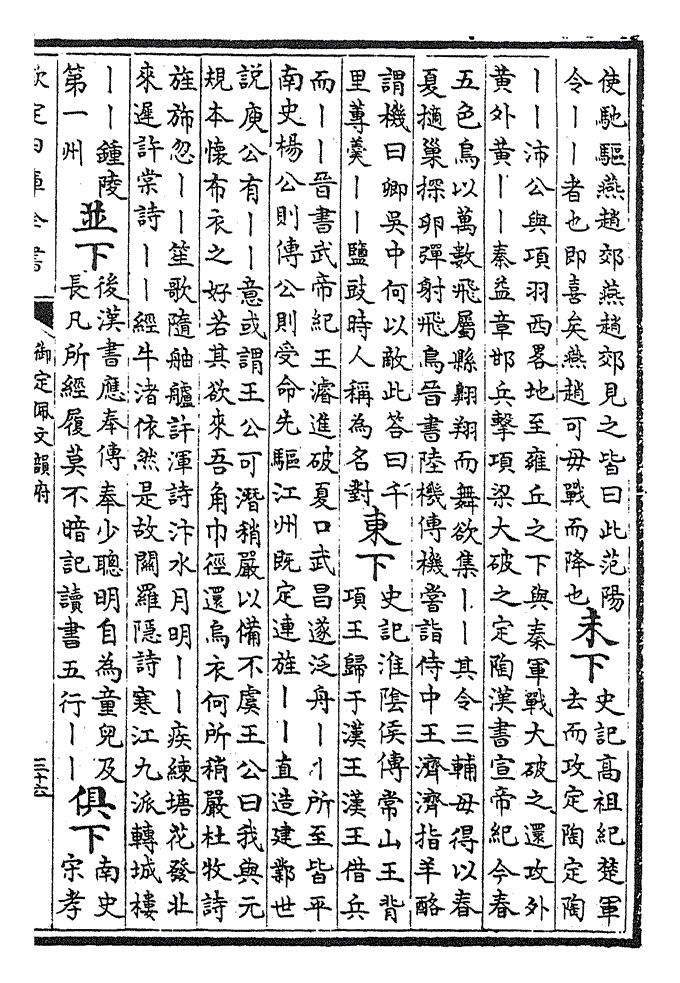 使馳驅燕趙郊燕趙郊見之皆曰此范陽
令丨丨者也即喜矣燕趙可毋戰而降也
未下
史記高祖紀楚軍
去而攻定陶定陶
丨丨沛公與項羽西畧地至雍丘之下與秦軍戰大破之還攻外
黃外黃丨丨秦益章邯兵擊項梁大破之定陶漢書宣帝紀今春
五色鳥以萬數飛屬縣翺翔而舞欲集丨丨其令三輔毋得以春
夏擿巢探卵彈射飛鳥晉書陸機傳機嘗詣侍中王濟濟指羊酪
謂機曰卿吳中何以敵此答曰千
里蓴羹丨丨鹽豉時人稱為名對
東下
史記淮陰侯傳常山王背
項王歸于漢王漢王借兵
而丨丨晉書武帝紀王濬進破夏口武昌遂泛舟丨丨所至皆平
南史楊公則傳公則受命先驅江州既定連旌丨丨直造建鄴世
說庾公有丨丨意或謂王公可潛稍嚴以備不虞王公曰我與元
規本懷布衣之好若其欲來吾角巾徑還烏衣何所稍嚴杜牧詩
旌旆忽丨丨笙歌隨舳艫許渾詩汴水月明丨丨疾練塘花發北
來遲許棠詩丨丨經牛渚依然是故關羅隱詩寒江九派轉城樓
丨丨鐘陵
第一州
並下
後漢書應奉傳奉少聰明自為童兒及
長凡所經履莫不暗記讀書五行丨丨
俱下
南史
宋孝
欽定四庫全書
御定佩文韻府
三十六